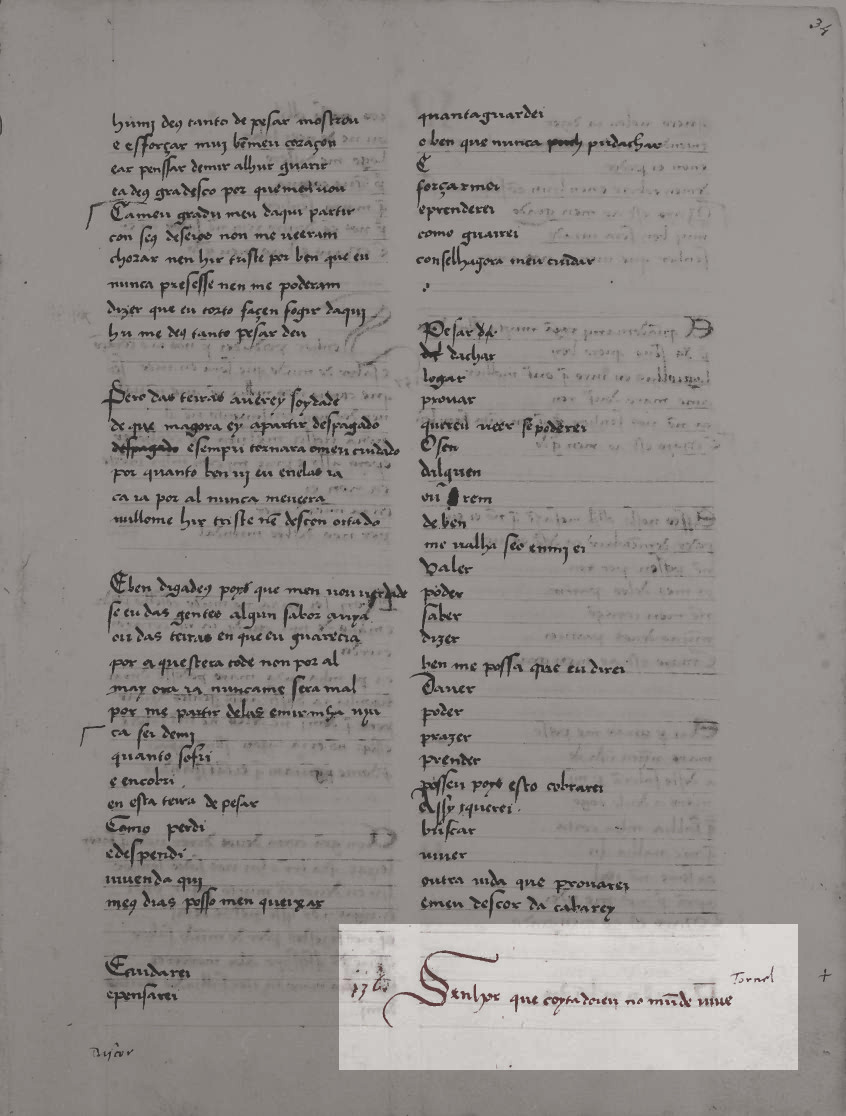 humj deꝯ tanto de pesar mostrou
e esforçar muj bẽ meu coraçon
ear penssar demir alhur guarir
ea deꝯ gradesco por quemen uou
Cameu gradu meu daqui partir
con seꝯ deseios non me ueeram
chorar nen hir triste por ben que eu
nunca presesse nen me poderam
dizer que eu torto façen fogir daquj
hu me deꝯ tanto pesar deu
Pero das terras auerey soydade
de que magora ey apartir despagado
despagado esempre tornara omeu cuidado
por quanto ben uj eu enelas ia
ca ia por al nunca meueera
nullome hir triste nẽ descon ortado
Eben digadeꝯ poys que men uou uerdade
se eu das gentes algun sabor auya
ou das terras en que eu guarecia
por a questera tode non por al
may ora ia nuncame sera mal
por me partir delas emirmha uyu
ca sei demi
quanto sofri
e encobri
en esta terra de pesar
Como perdi
edespendi
uiuendaqui
meꝯ dias posso men queixar
Ecuidarei
epensarei
discor
quantaguardei
o ben que nunca pudachar
E
forçarmei
eprenderei
como guarrei
conselhagora meu cuidar
Pesar da
dachar
logar
prouar
quereu ueer se poderei
Osen
dalguen
ou rem
de ben
me ualha seo enmj ei
Valer
poder
saber
dizer
ben me possa que eu direi
Dauer
poder
prazer
prender
posseu poys esto cobrarei
Assy querei
buscar
uiuer
outra uida que prouarei
emeu descor da cabarey
Tornel
Senhor que coytadoieu no mũde uiue